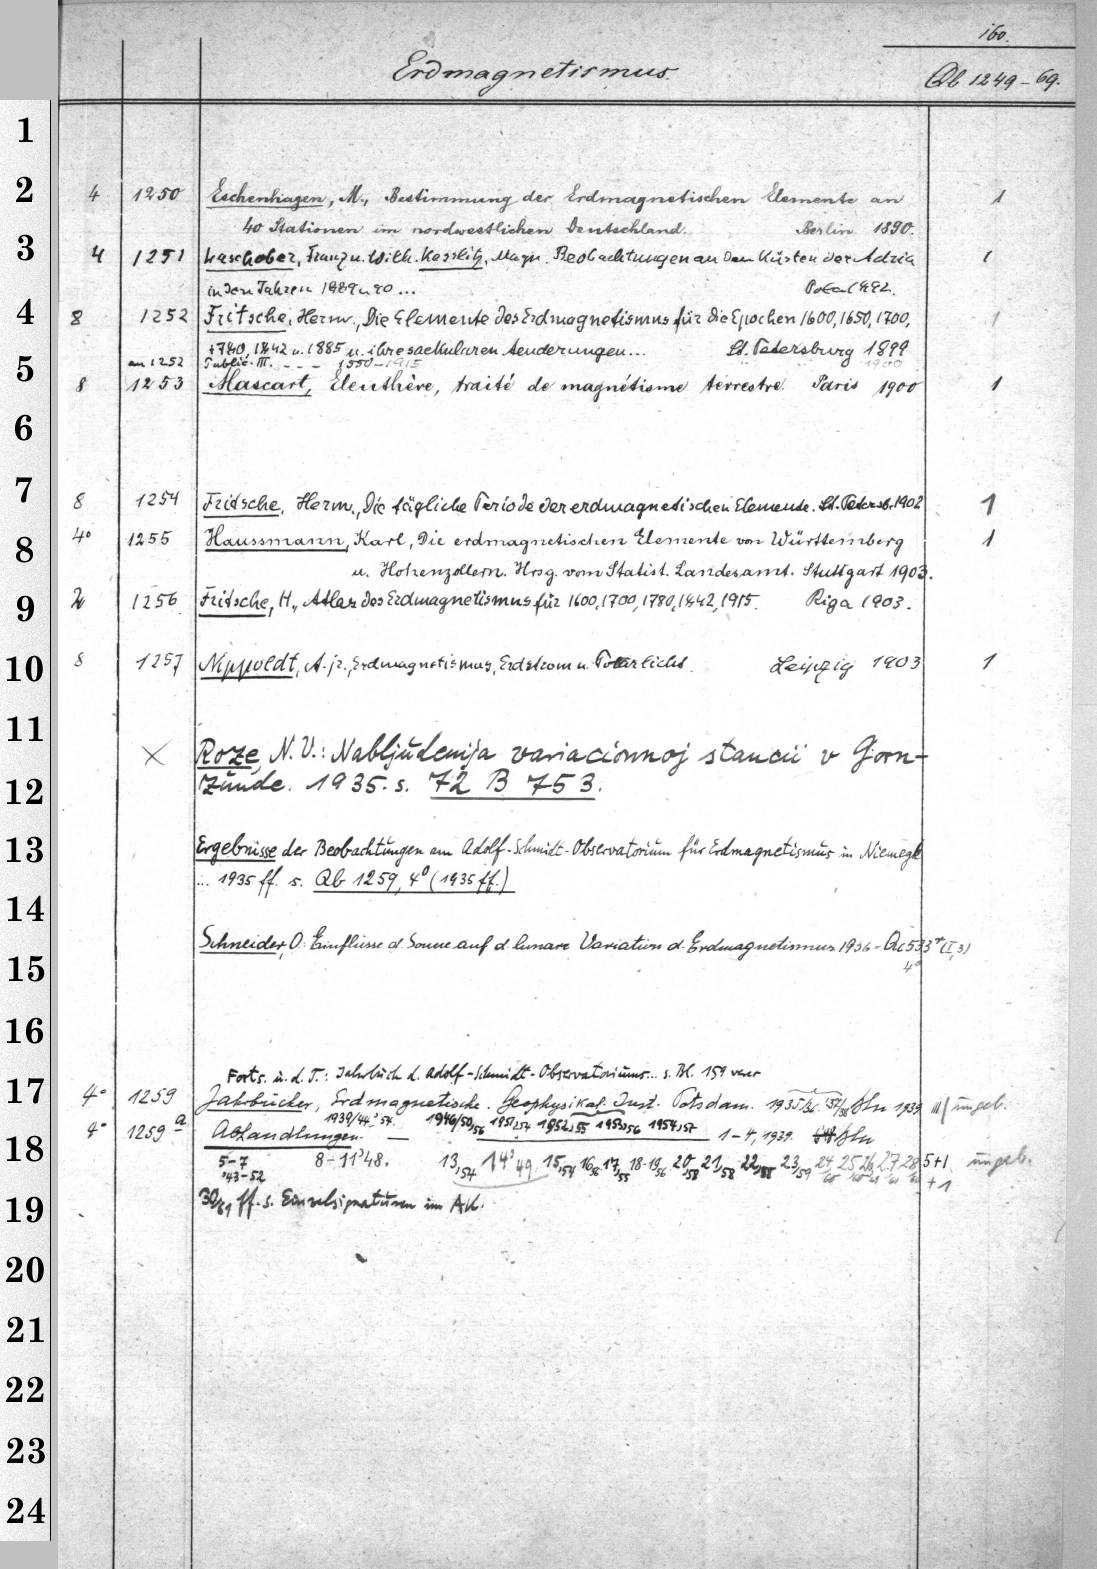 160.
Erdmagnetismus.
Qb 1249-69.
1
2
3
4
5
6
7
8
9
10
11
12
13
14
15
16
17
18
19
20
21
22
23
24
4 1250 Eschenhagen, M., Bestimmung der Erdmagnetischen Elemente an 1
40 Stationen im nordwestlichen Deutschland. Berlin 1890.
4 1251 Laschober, Franz u. Wilh. Kesslitz, Magn. Beobachtungen an den Küsten der Adria 1
in den Jahren 1889 u 90 ... Pola 1892.
8 1252 Fritsche, Herm., Die Elemente des Erdmagnetismus für die Epochen 1600, 1650, 1700, 1
1780, 1842 u. 1885 u. ihre saekularen Aenderungen... St. Petersburg 1899
an 1252 Public. III. - - - 1550-1915 1900
8 1253 Mascart, Eleuthère, traité de magnétisme terrestre. Paris 1900 1
8 1254 Fritsche, Herm., Die tägliche Periode der erdmagnetischen Elemente. St. Petersb. 1902 1
4° 1255 Haussmann, Karl, Die erdmagnetischen Elemente von Württemberg 1
u. Hohenzollern. Hrsg. vom Statist. Landesamt. Stuttgart 1903.
1256 Fritsche, H., Atlas des Erdmagnetismus für 1600, 1700, 1780, 1842, 1915. Riga 1903.
8 1257 Nippoldt, A. jr., Erdmagnetismus, Erdstrom u. Polarlicht. Leipzig 1903 1
× Roze, N. V.: Nabljudenija variacionnoj stancii v Gorn-
Zunde. 1935. s. 72 B 753.
Ergebnisse der Beobachtungen am Adolf-Schmidt-Observatorium für Erdmagnetismus in Niemegk
... 1935 ff. s. Qb 1259, 4° (1935 ff.)
Schneider, O: Einflüsse d. Sonne auf d. lunare Variation d. Erdmagnetismus 1936 - Ac 533+ (I,3)
4°
Forts. u. d. T.: Jahrbuch d. Adolf-Schmidt-Observatoriums... s. Bl. 159 verso
4° 1259 Jahrbücher, Erdmagnetische. Geophysikal. Inst. Potsdam. 1935/36. 37/38 Bln 1939 ungeb.
1939/44, 54. 1949/50,56 1951,54 1952,55 1953,56 1954,57
4° 1259 a Abhandlungen. — 1-4, 1939. Bln
5-7 8-11, 48. 13,54 14, 49, 15,54 16,56 17,55 18-19,56 20,58 21,58 22,58 23,59 24 25 26 27 28 5+1 ungeb.
,43-52 +1
30/61 ff. s. Einzelsignaturen im AK.